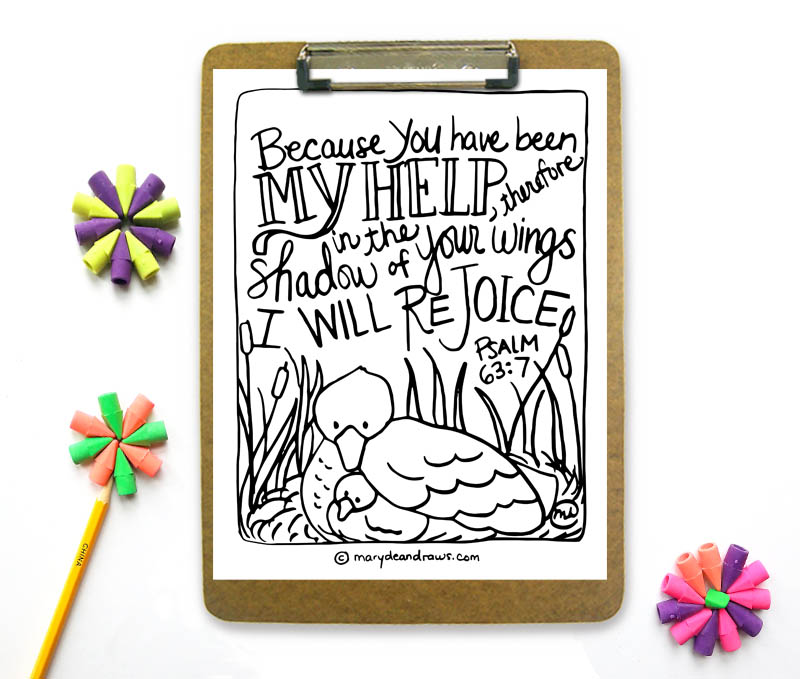 Because You have been
MY HELP, therefore
in the
shadow of Your wings
I WILL REJOICE
PSALM
63:7
md
© marydeandraws.com
CHINA